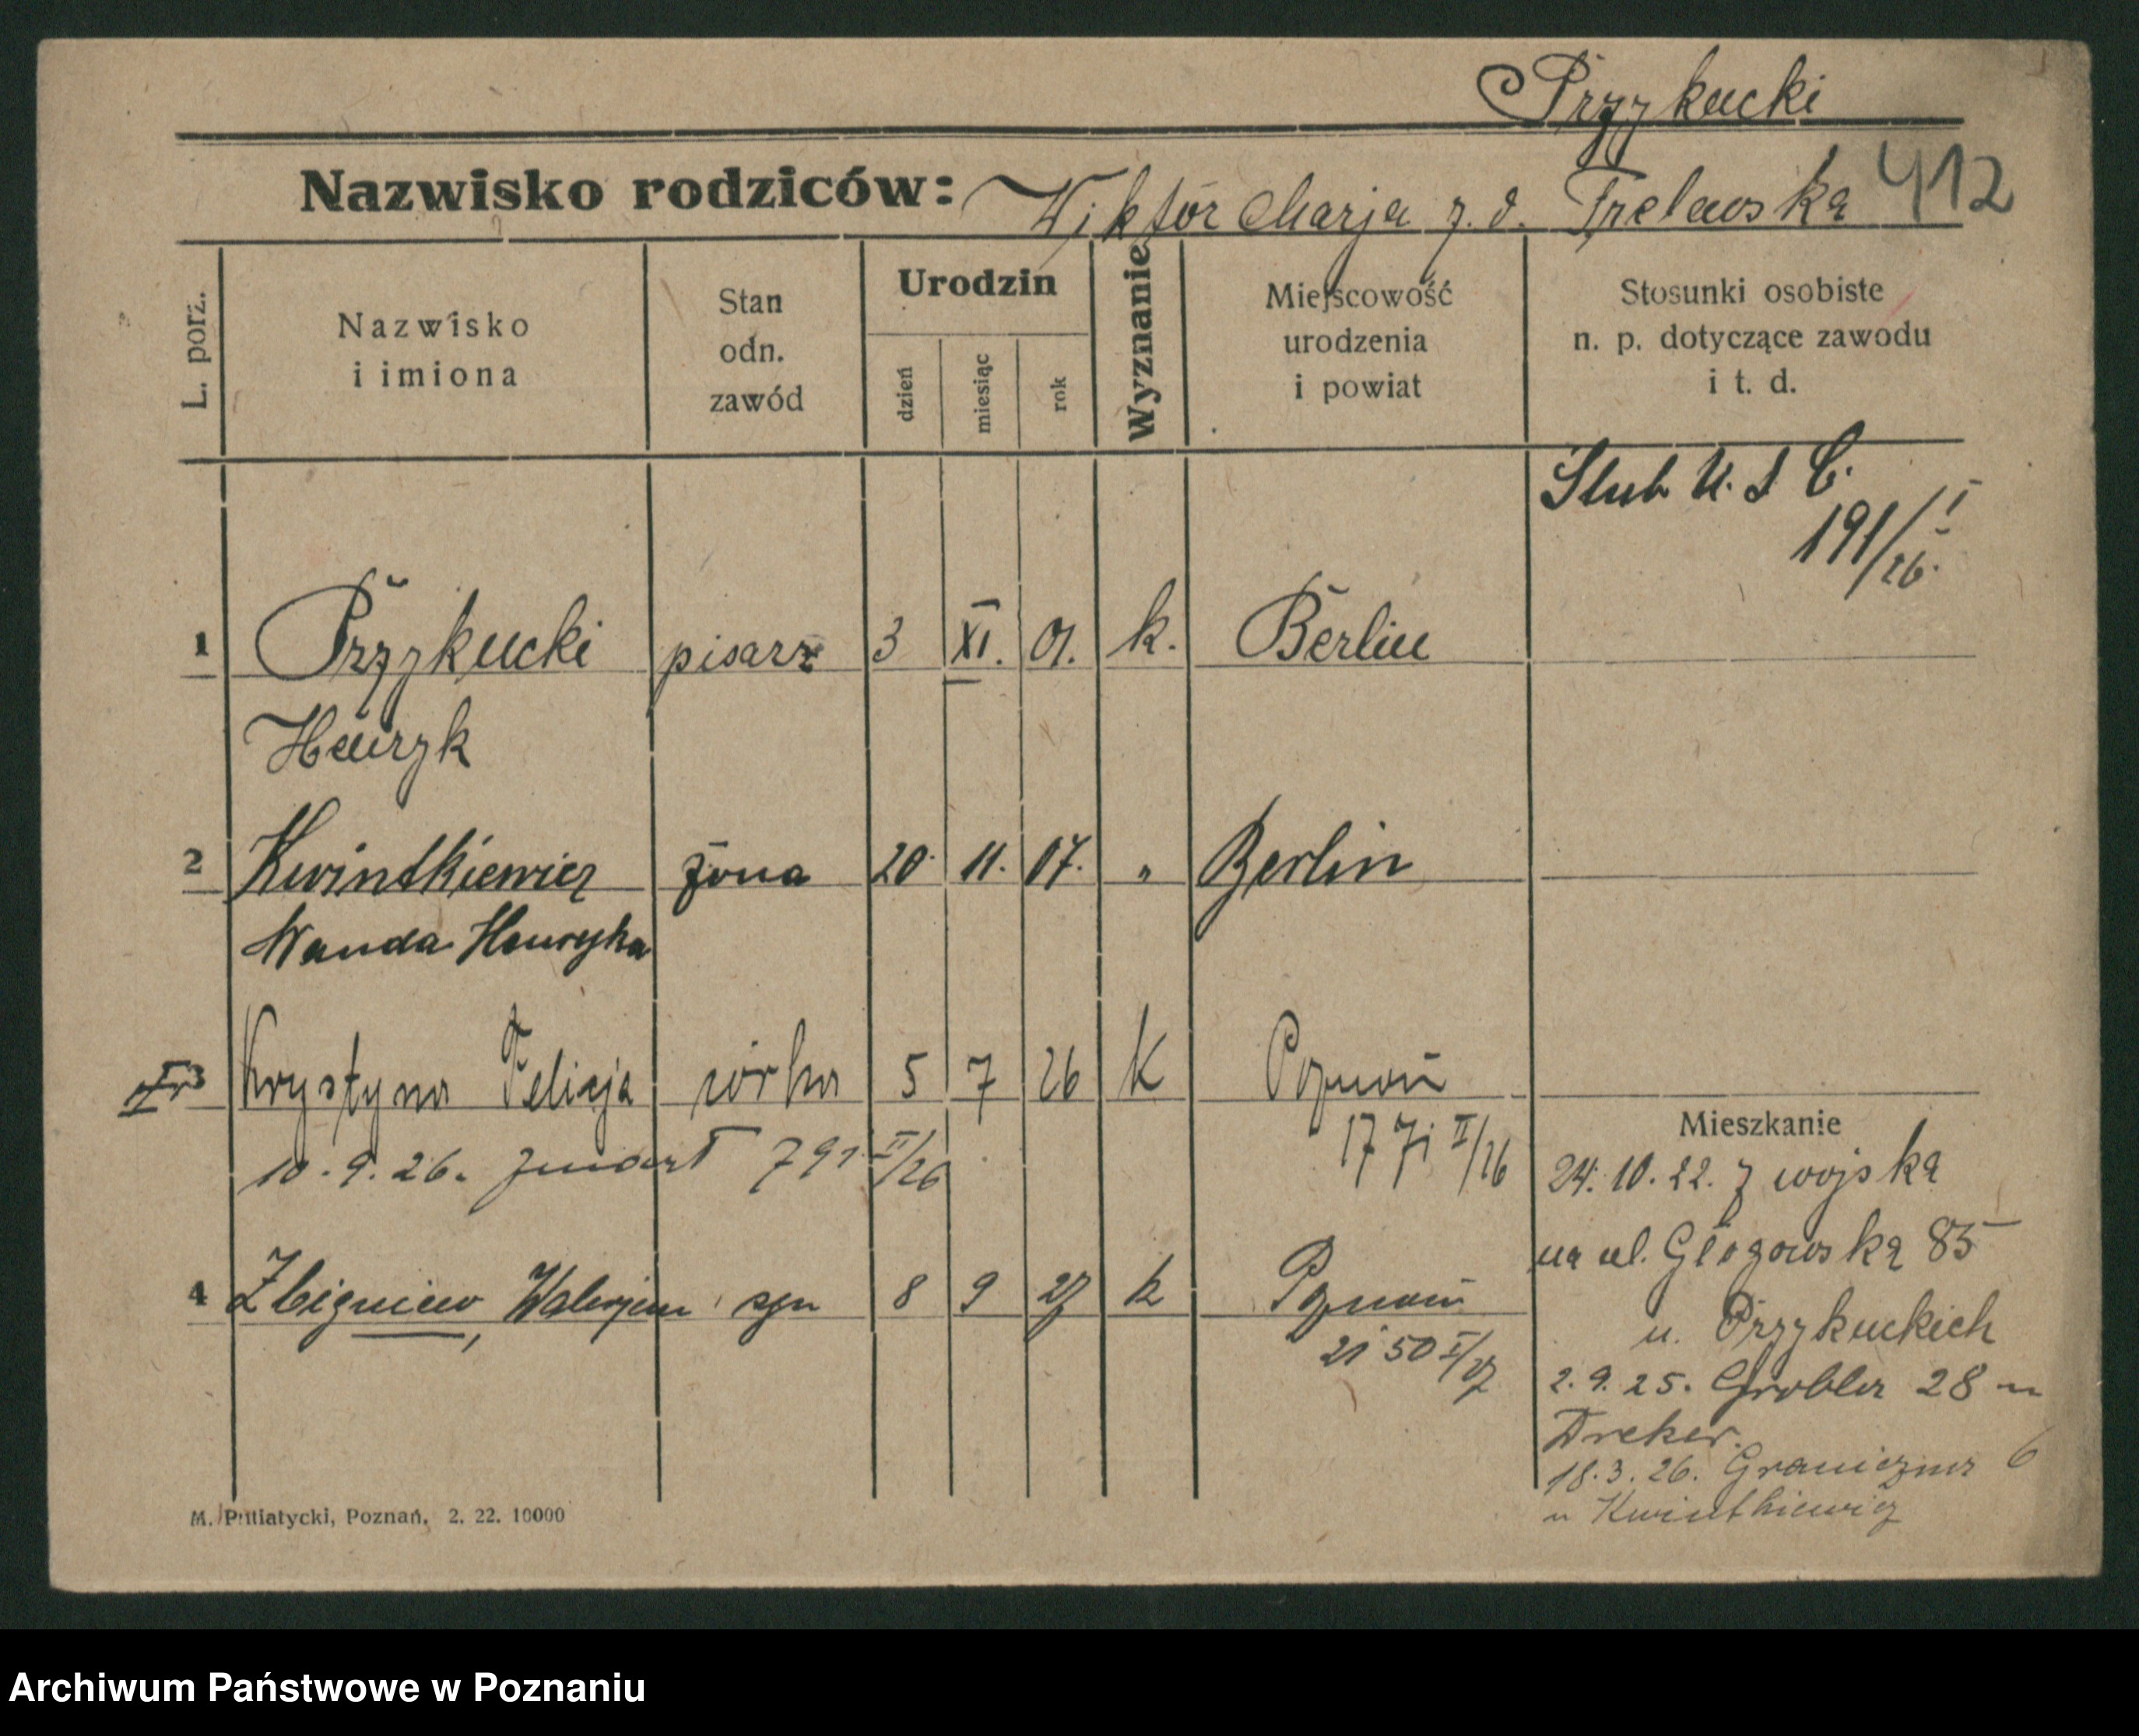 Przykucki
Nazwisko rodziców: Wiktor Marja z. d. Trelawska 412
L. porz.
Nazwisko
i imiona
Stan
odn.
zawód
Urodzin
dzień
miesiąc
rok
Wyznanie
Miejscowość
urodzenia
i powiat
Stosunki osobiste
n. p. dotyczące zawodu
i t. d.
Slub U. S C.
191/I/26.
1 Przykucki pisarz 3 XI. 01. k. Berlin
Henryk
2 Kwintkiewicz żona 20. 11. 07. " Berlin
Wanda Henryka
3 Krystyna Felicja córka 5 7 26 K Poznań
10. 9. 26. zmarł 791 II/26
1771 II/26
4 Zbigniew, Walerjan syn 8 9 27 k Poznań
2150 I/27
Mieszkanie
24. 10. 22. z wojska
na ul. Głogowska 85
u. Przykuckich
2. 9. 25. Grobla 28 u
Dreker.
18. 3. 26. Graniczna 6
u Kwintkiewicz
M. Putiatycki, Poznań, 2. 22. 10000
Archiwum Państwowe w Poznaniu